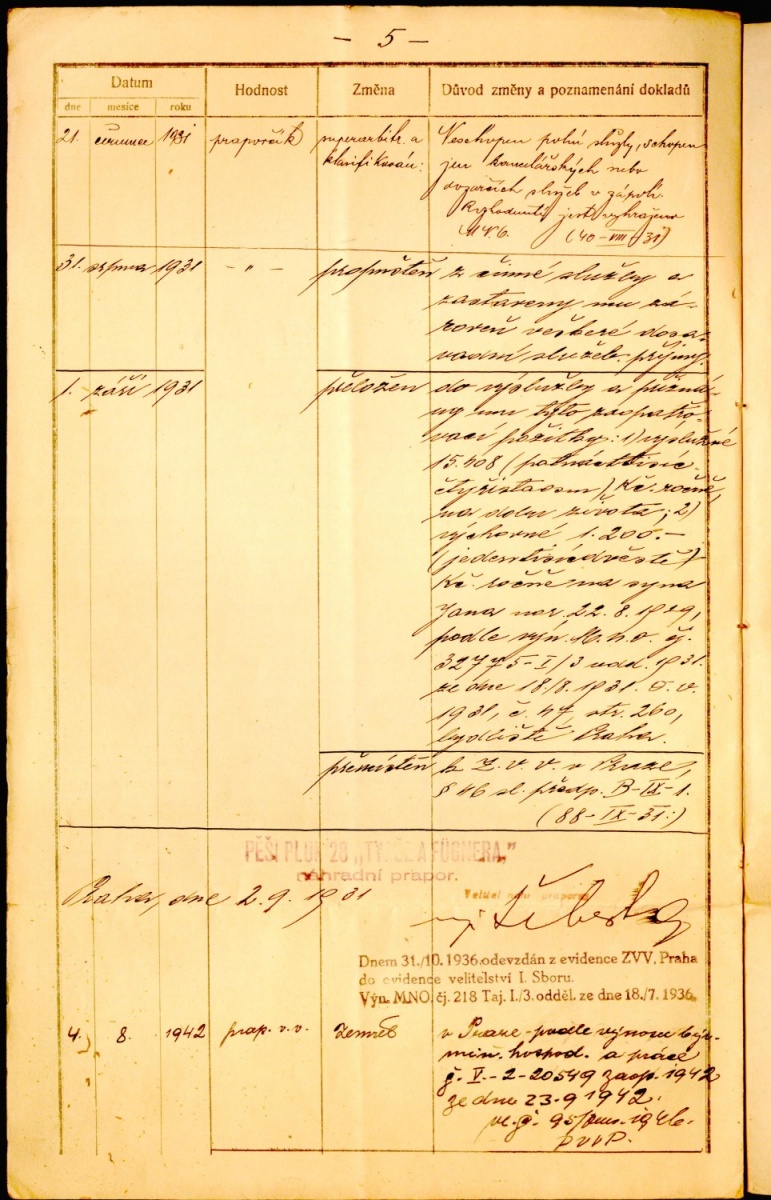 — 5 —
Datum
Hodnost
Změna
Důvod změny a poznamenání dokladů
dne měsíce roku
21. července 1931 praporčík superarbitr. a
klasifikován:
Neschopen polní služby, schopen
jen kancelářských nebo
dozorčích služeb v zápolí.
Rozhodnutí jest vyhrazeno
(40-VIII-31)
31. srpna 1931 — " — propuštěn
z činné služby a
zastaveny mu zá-
roveň veškeré dosa-
vadní služeb. příjmy.
1. září 1931 přeložen
do výslužby a přizná-
ny mu tyto zaopatřo-
vací požitky: 1) výslužné
15.408 (patnácttisíc-
čtyřistaosm) Kč. ročně,
na dobu života; 2)
výchovné 1.200.-
(jedentisícdvěstě)
Kč. ročně na syna
Jana nar. 22. 8. 1929,
podle výn. M.n.o. čj.
32775-I/3 odd. 1931.
ze dne 18./8. 1931. O. v.
1931, č. 47, str. 260,
bydliště Praha.
přemístěn
k Z. V. V. v Praze,
§ 46 sl. předp. B-IX-1.
(88-IX-31:)
PĚŠÍ PLUK 28 „TYRŠE A FÜGNERA,"
náhradní prapor.
Praha, dne 2. 9. 1931
Velitel náhr. praporu
Dnem 31./10. 1936. odevzdán z evidence ZVV, Praha
do evidence velitelství I. Sboru.
Výn. MNO. čj. 218 Taj. I./3. odděl. ze dne 18./7. 1936.
4. 8. 1942 prap. v.v. zemřel
v Praze - podle výnosu býv.
min. hospod. a práce
č. V.-2-20549 zaop. 1942
ze dne 23.9 1942.